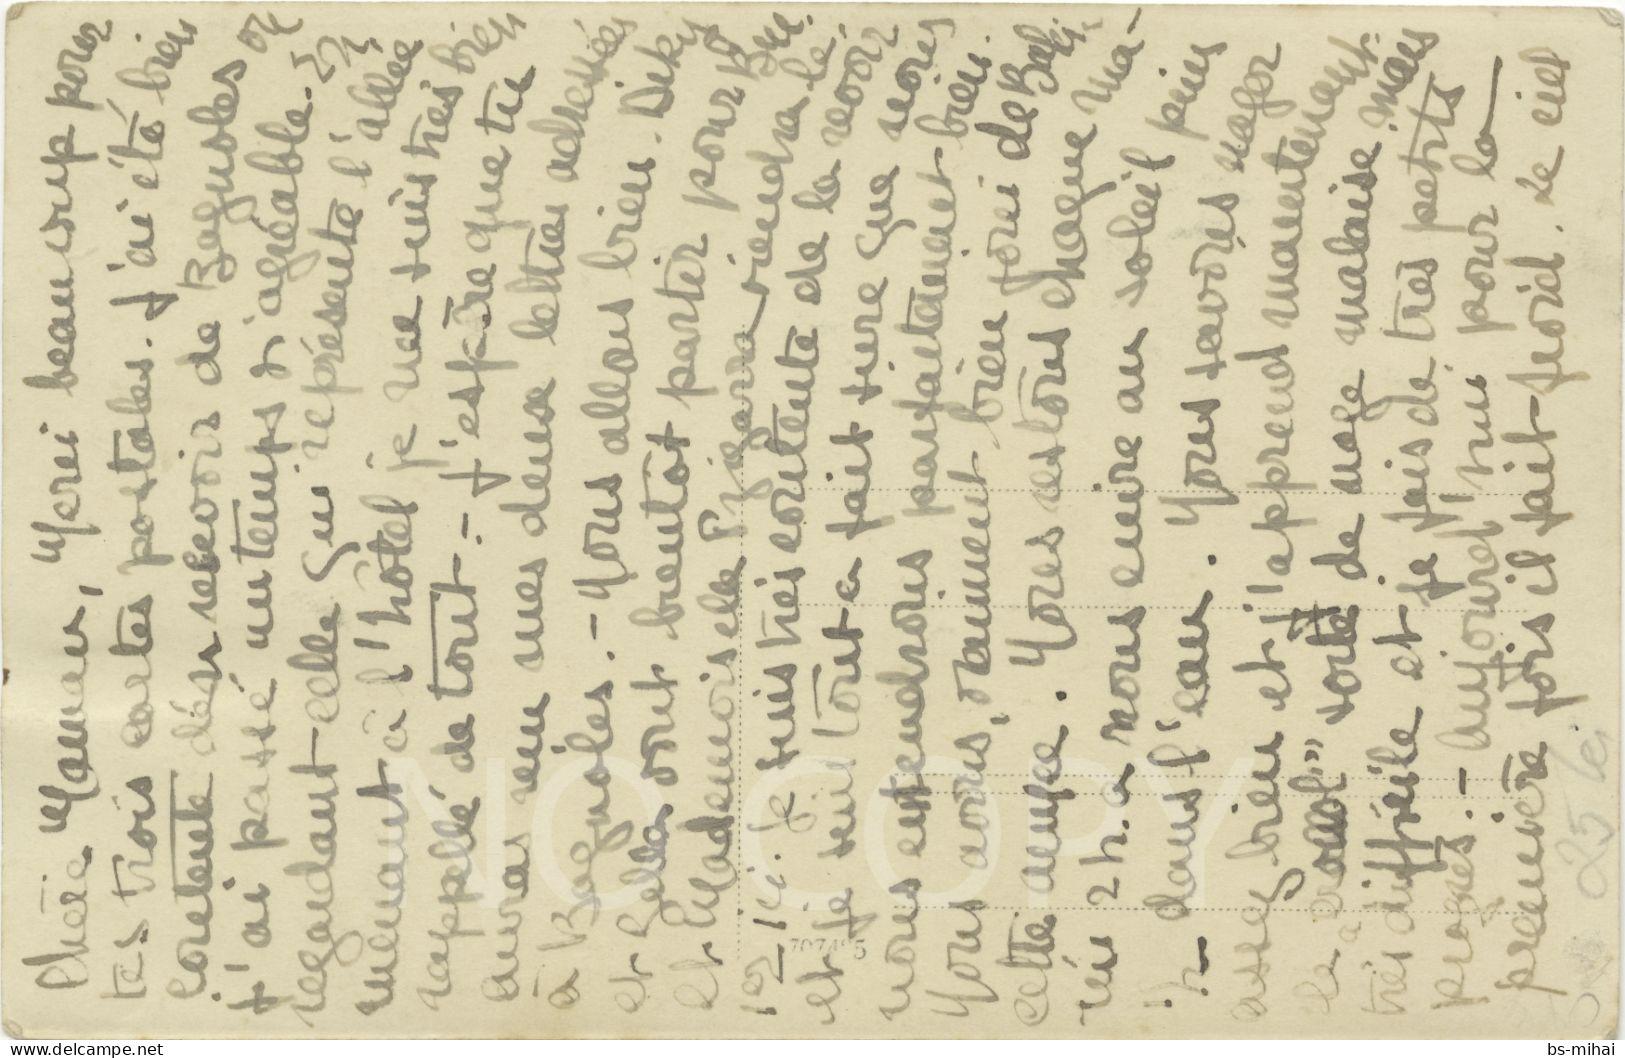 Chère Maman, Merci beaucoup pour
tes trois cartes postales. J'ai été bien
contente de les recevoir de Bagnoles où
j'ai passé un temps si agréable. En
regardant celle qui représente l'allée
menant à l'hôtel je me suis très bien
rappelé de tout. - J'espère que tu
auras reçu mes deux lettres adressées
à Bagnoles. - Nous allons bien. Dicky
et Bella vont bientôt partir pour
et Mademoiselle Pizarra viendra le
1er ici. Je suis très contente de la revoir
et je suis tout à fait sûre que nous
nous entendrons parfaitement bien.
Nous avons, vraiment bien joui de
cette année. Nous restons chaque ma-
tin 2 h. à nous cuire au soleil puis
h - dans l'eau. Nous savons nager
assez bien et j'apprend maintenant
le "crawl" sorte de nage malaise mais
très difficile et je fais de très petits
progrès. - Aujourd'hui pour la
première fois il fait froid. Le ciel
25 lei
707495
NO COPY
delcampe.net
bs-mihai